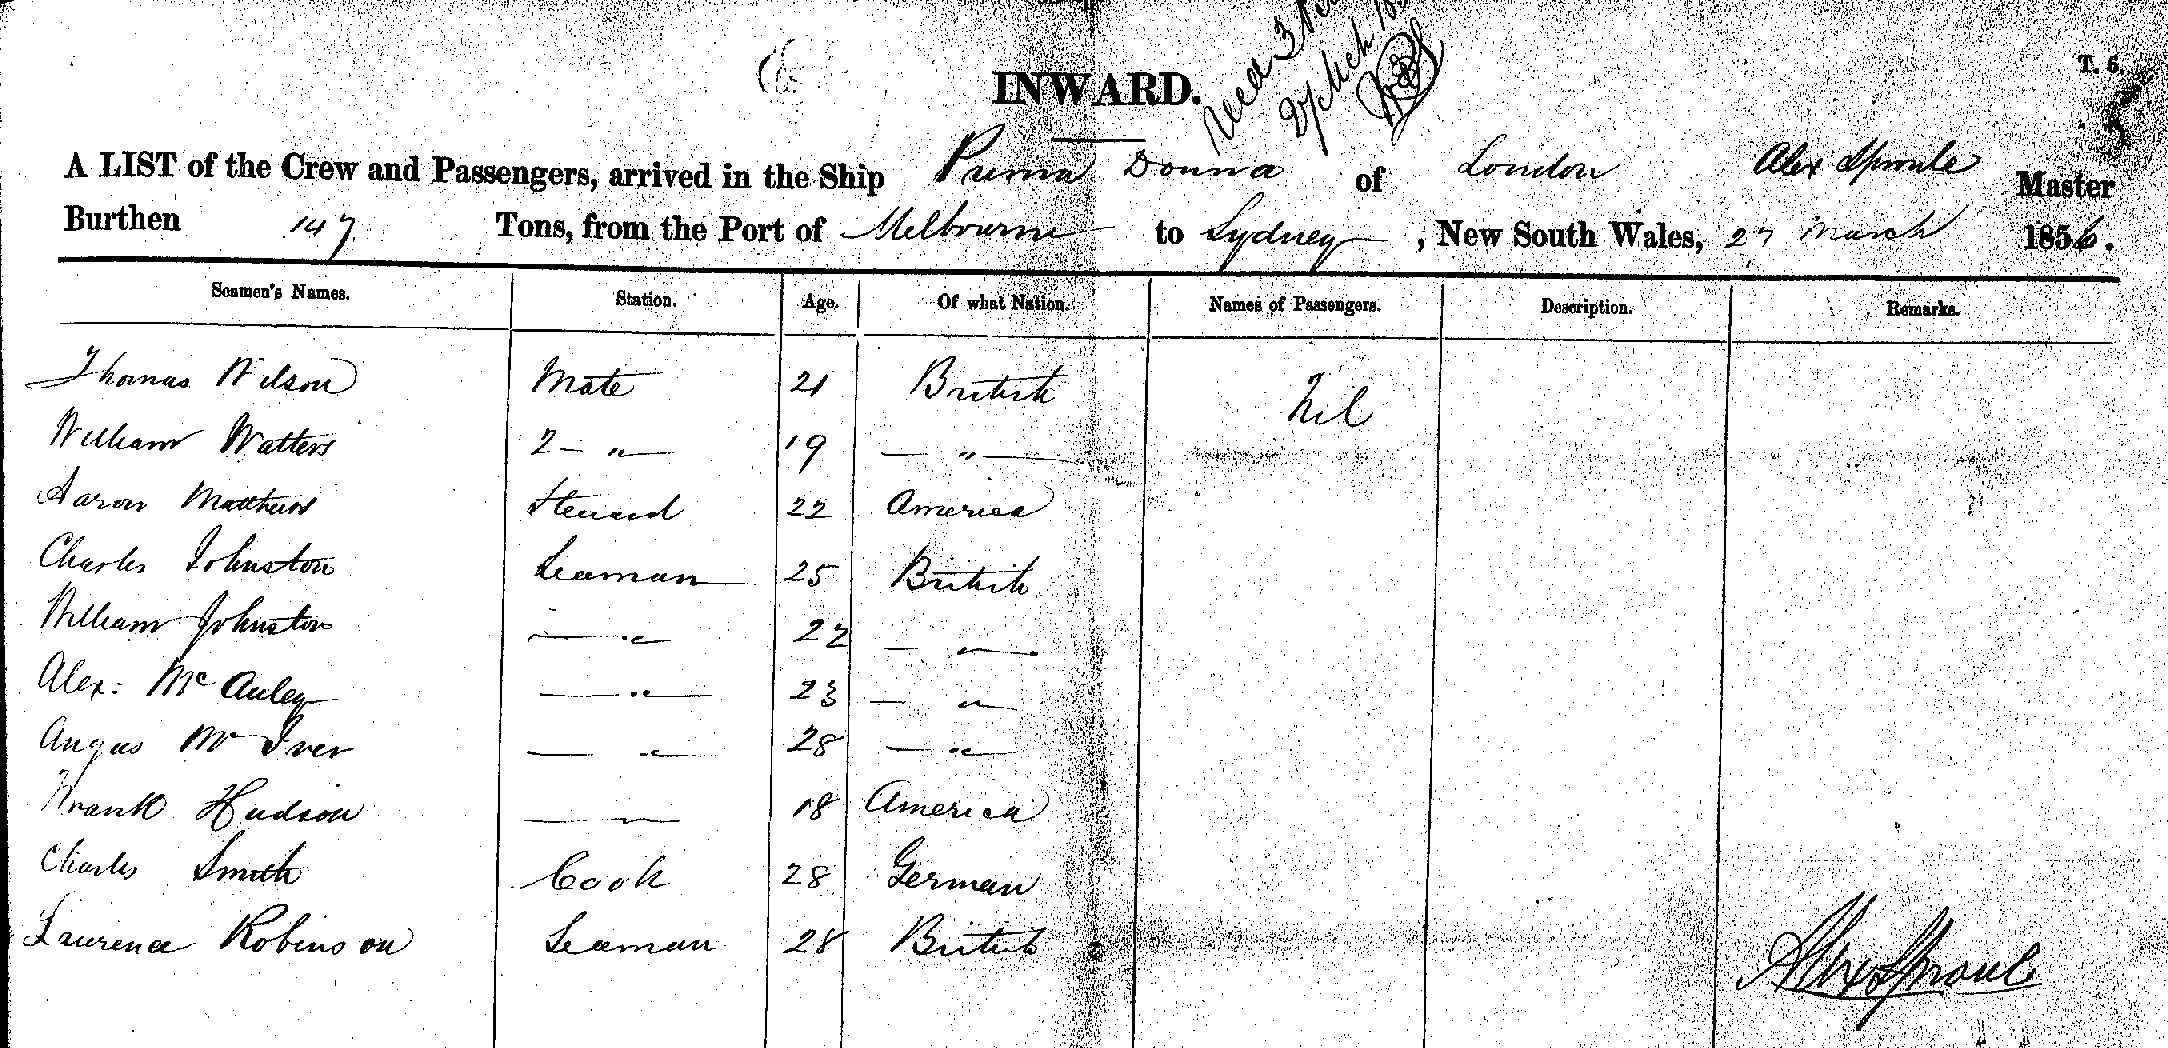 T. 6.
INWARD.
A LIST of the Crew and Passengers, arrived in the Ship Prima Donna of London Alex Sproule Master
Burthen 147 Tons, from the Port of Melbourne to Sydney, New South Wales, 27 March 1856.
Seamen's Names. Station. Age. Of what Nation. Names of Passengers. Description. Remarks.
Thomas Wilson Mate 21 British Nil
William Watters 2 - " 19 - " -
Aaron Matthews Steward 22 America
Charles Johnston Seaman 25 British
William Johnston - " 22 - "
Alex: McAuley - " 23 - "
Angus Mc Iver - " 28 - "
Frank Hudson - " 18 America
Charles Smith Cook 28 German
Laurence Robinson Seaman 28 British
Alex Sproule